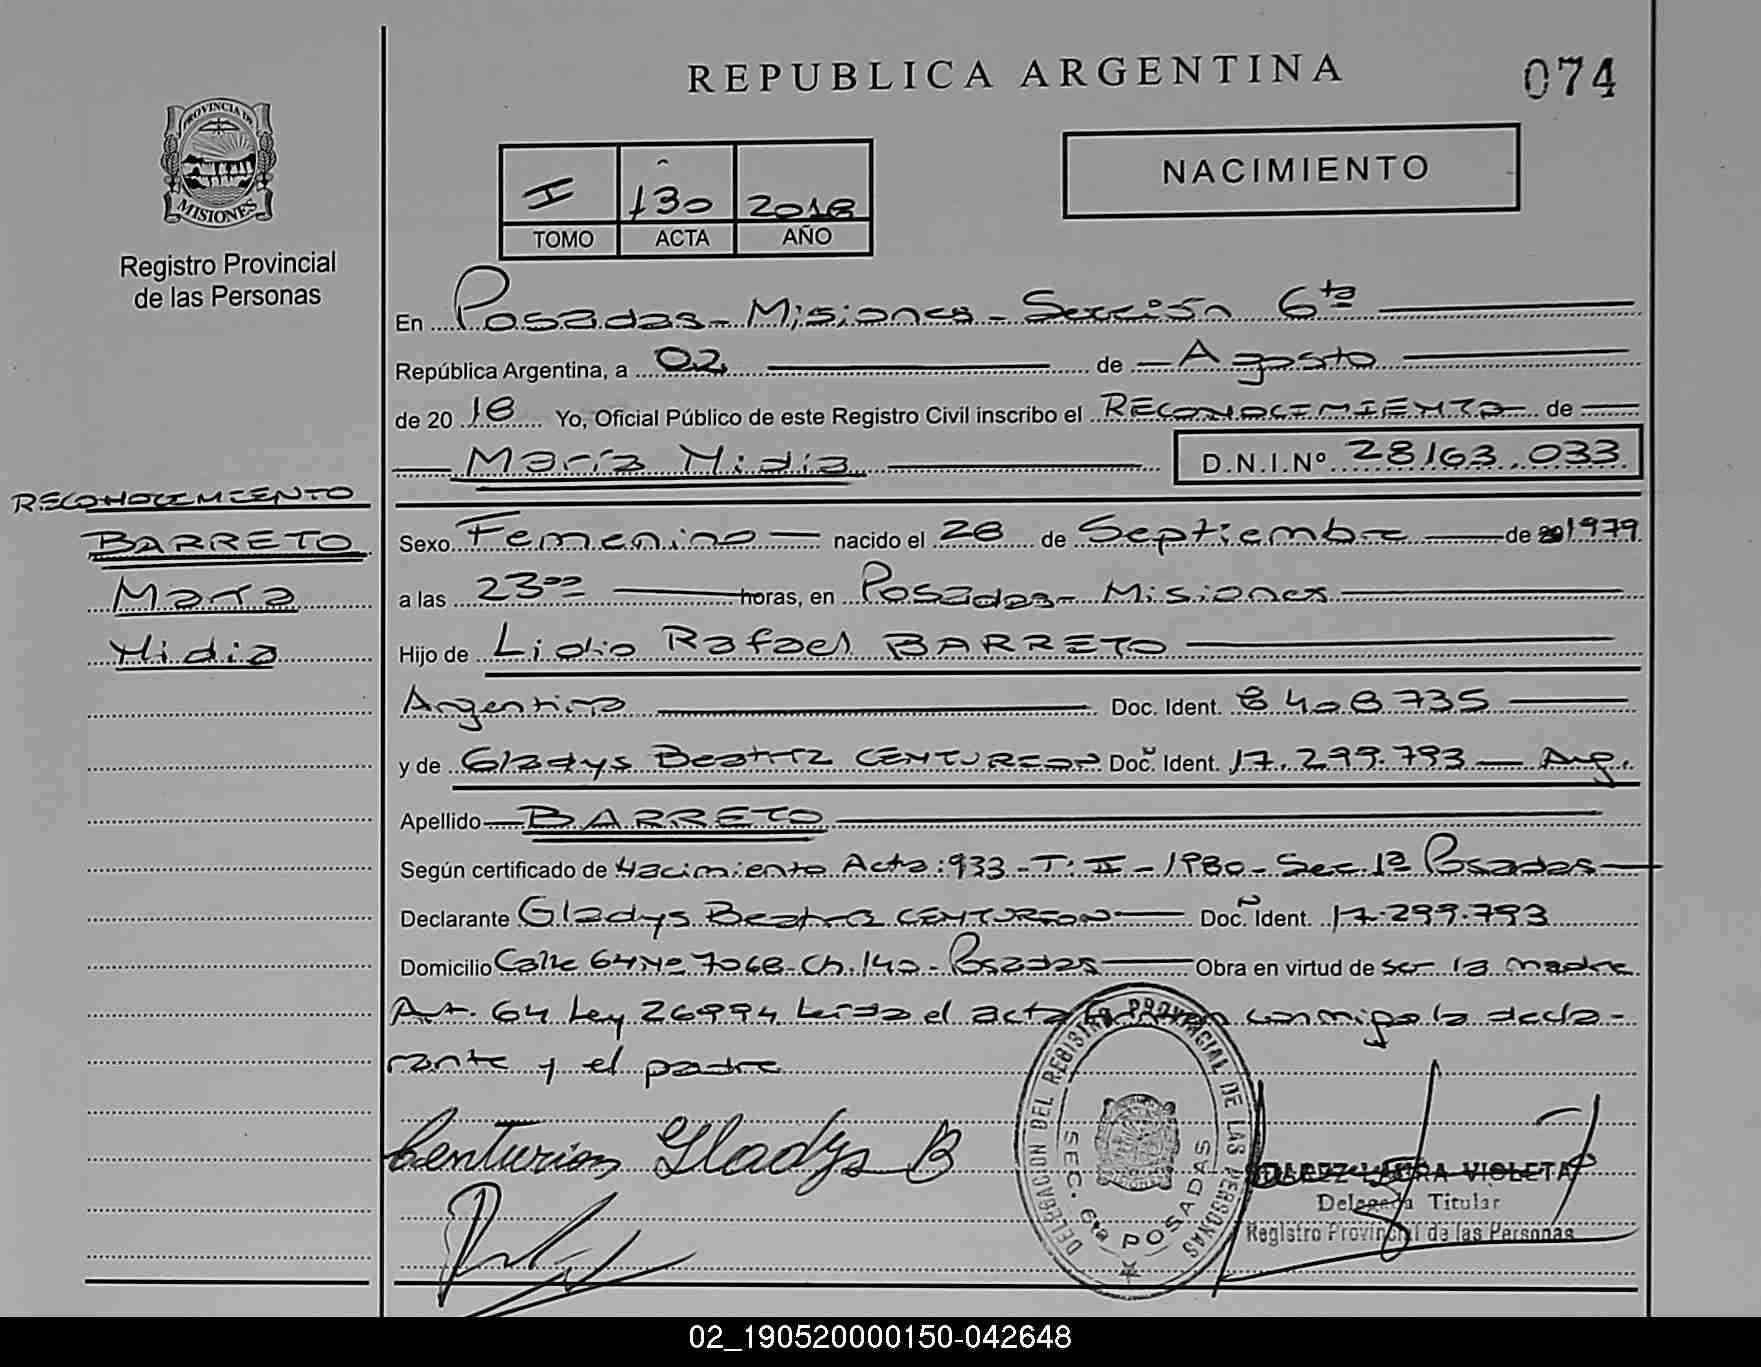 REPUBLICA ARGENTINA
074
PROVINCIA DE
MISIONES
Registro Provincial
de las Personas
NACIMIENTO
I 130 2018
TOMO ACTA AÑO
En Posadas - Misiones - Sección 6ta
República Argentina, a 02 de Agosto
de 2018 Yo, Oficial Público de este Registro Civil inscribo el RECONOCIMIENTO de
María Nidia D.N.I.Nº 28163.033
RECONOCIMIENTO
BARRETO
María
Nidia
Sexo Femenino nacido el 28 de Septiembre de 1979
a las 23 00 horas, en Posadas - Misiones
Hijo de Lidio Rafael BARRETO
Argentino Doc. Ident. 8408735
y de Gladys Beatriz CENTURION Doc. Ident. 17.299.793 - Arg.
Apellido BARRETO
Según certificado de Nacimiento Acta: 933 - T: II - 1980 - Sec. 1ª Posadas
Declarante Gladys Beatriz CENTURION Doc. Ident. 17.299.793
Domicilio Calle 64 Nº 7068 - Ch. 140 - Posadas Obra en virtud de ser la madre
Art. 64 Ley 26994 Leída el acta la firman conmigo la decla-
rante y el padre
Centurion Gladys B
DELEGACION DEL REGISTRO PROVINCIAL DE LAS PERSONAS
SEC. 6ta POSADAS
LAURA VIOLETA
Delegada Titular
Registro Provincial de las Personas
02_190520000150-042648